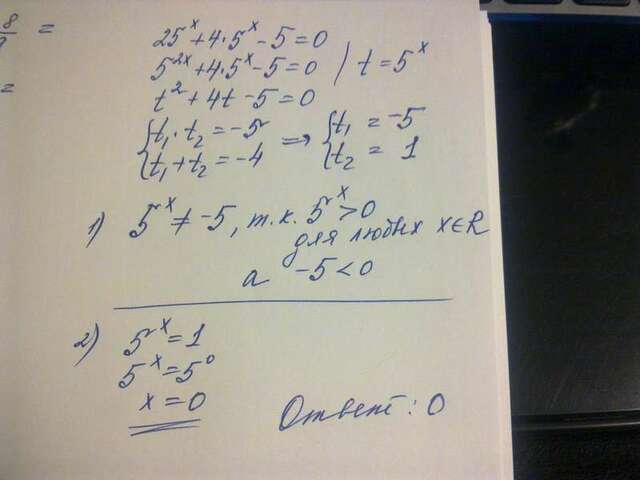 8/9 =
=
25^x + 4·5^x - 5 = 0
5^2x + 4·5^x - 5 = 0 / t = 5^x
t^2 + 4t - 5 = 0
{ t₁·t₂ = -5 => { t₁ = -5
{ t₁ + t₂ = -4 { t₂ = 1
1) 5^x ≠ -5, т.к. 5^x > 0
для любых x∈R
а -5 < 0
2) 5^x = 1
5^x = 5^0
x = 0
Ответ: 0